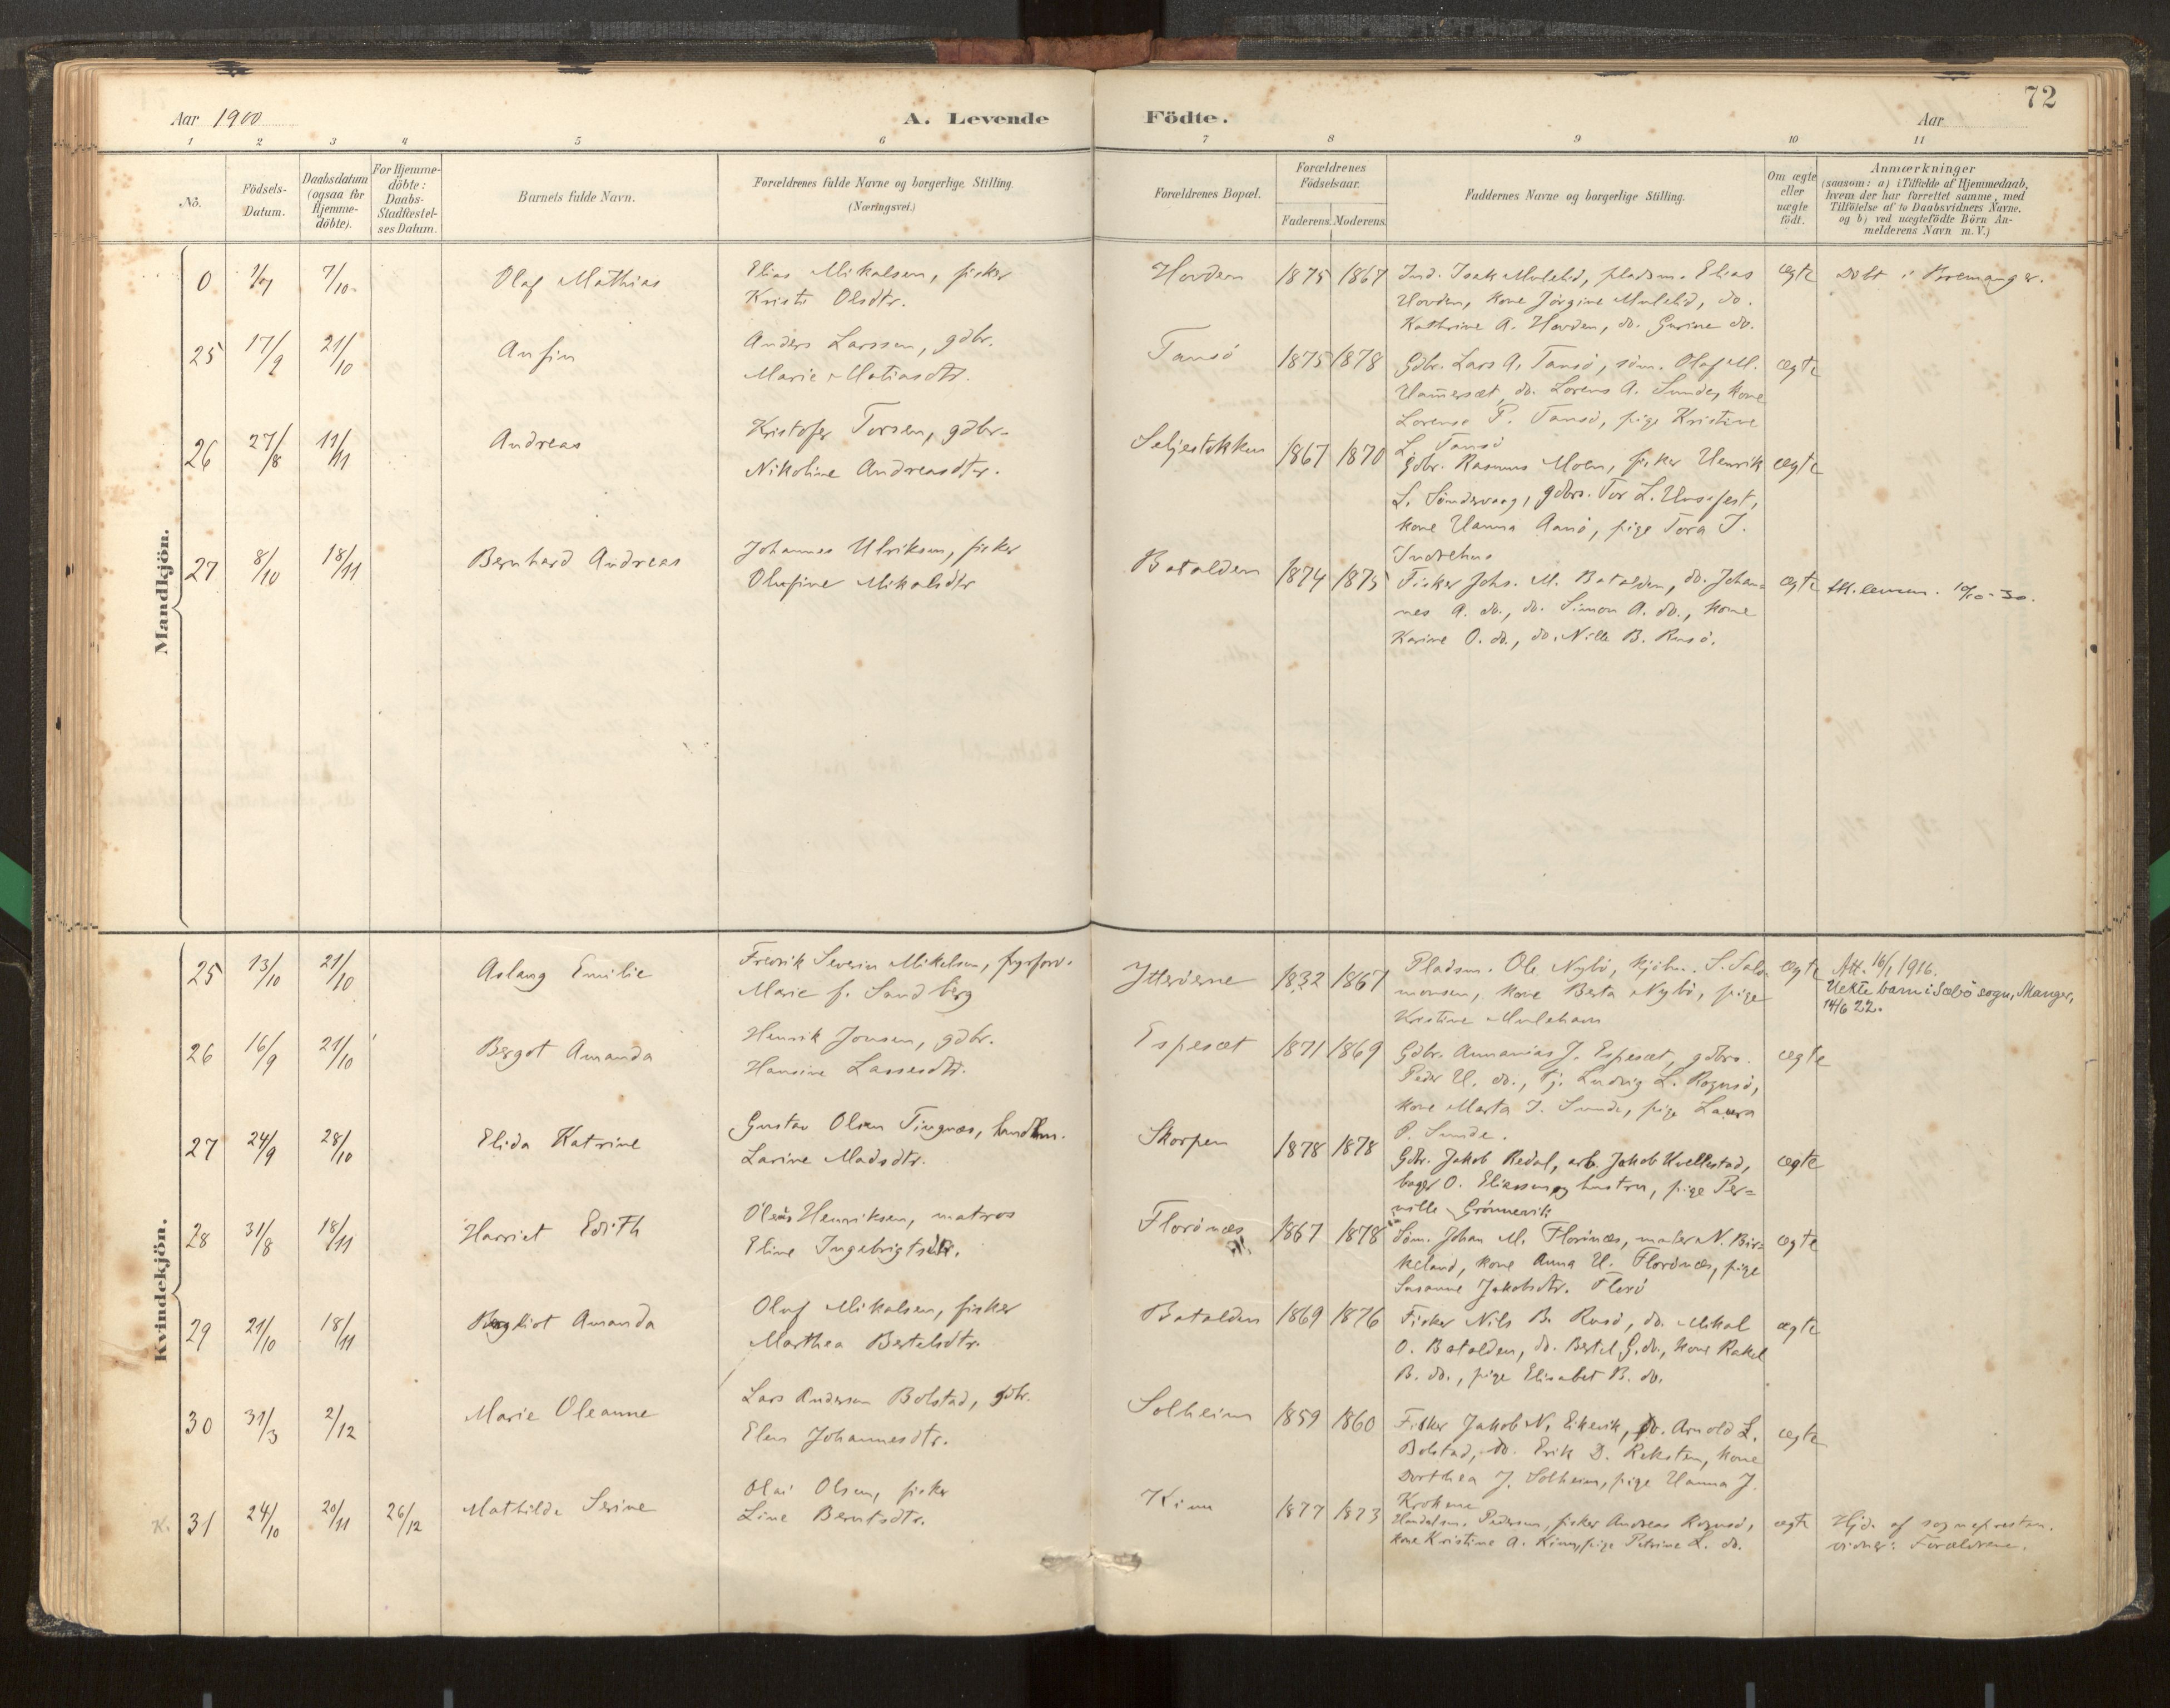 72
Aar 1900
A. Levende Födte.
Aar
1 2 3 4 5 6 7 8 9 10 11
Nö.
Födsels-Datum.
Daabsdatum (ogsaa for Hjemme-döbte).
For Hjemme-döbte: Daabs-Stadfæstel-ses Datum.
Barnets fulde Navn.
Forældrenes fulde Navne og borgerlige Stilling.
(Næringsvei.)
Forældrenes Bopæl.
Forældrenes Födselsaar.
Faderens. Moderens.
Faddernes Navne og borgerlige Stilling.
Om ægte eller uægte födt.
Anmærkninger
(saasom: a) i Tilfælde af Hjemmedaab,
hvem der har forrettet samme, med
Tilföielse af to Daabsvidners Navne,
og b) ved uægtefödte Börn An-
melderens Navn m. V.)
Mandkjön.
0 7/10 Olaf Mathias
Elias Mikalsen, fisker
Kristi Olsdtr.
Hovden 1875 1867
Ind. Isak Mulelid, pladsm. Elias
Hovden, kone Jörgine Mulelid, do.
Kathrine A. Hovden, do. Gurine do.
ægte Döbt i Bremanger.
25 17/9 21/10 Anfin
Anders Larssen, gdbr.
Marie Matiasdtr.
Tansö 1875 1878
Gdbr. Lars A. Tansö, söm. Olaf M.
Hammersæt, do. Lorens A. Sunde, kone
Lorense P. Tansö, pige Kristine
L. Tansö
ægte
26 27/8 11/11 Andreas
Kristofer Torsen, gdbr.
Nikoline Andreasdtr.
Seljestokken 1867 1870
Gdbr. Rasmus Moen, fisker Henrik
L. Söndervaag, gdbrs. Tor L. Husefest,
kone Hanna Aanö, pige Tora J.
Indrehus
ægte
27 8/10 18/11 Bernhard Andreas
Johannes Ulriksen, fisker
Olufine Mikalsdtr
Batalden 1874 1875
Fisker Johs. M. Batalden, do. Johan=
nes A. do., do. Simon A. do., kone
Karine O. do., do. Nille B. Rusö.
ægte 10/10-30.
Kvindekjön.
25 13/10 21/10 Aslaug Emilie
Fredrik Severin Mikelsen, fyrforv.
Marie f. Sandberg
Ytteröerne 1832 1867
Pladsm. Ole Nybö, kjöbm. S. Salo-
monsen, kone Berta Nybö, pige
Kristine Mulehavn
ægte Att. 16/1 1916.
Uekte barn i Sæbö sogn, Manger,
14/6 22.
26 16/9 21/10 Bergot Amanda
Henrik Jonsen, gdbr.
Hansine Lassesdtr.
Espesæt 1871 1869
Gdbr. Annanias J. Espesæt, gdbrs.
Peder H. do., tj. Ludvig L. Rognsö,
kone Marta J. Sunde, pige Laura
P. Sunde.
ægte
27 24/9 28/10 Elida Katrine
Gustav Olsen Tingnæs, handlm.
Larine Madsdtr.
Skorpen 1878 1878
Gdbr. Jakob Redal, arb. Jakob Kvellestad,
bager O. Eliassen og hustru, pige Per=
nille Grönnevik
ægte
28 31/8 18/11 Harriet Edith
Oleas Henriksen, matros
Eline Ingebrigtsdtr.
Florönæs 1867 1878
Söm. Johan M. Florönæs, maler N. Bir=
keland, kone Anna H. Florönæs, pige
Susanne Jakobsdtr. Florö
ægte
29 21/10 18/11 Bergliot Amanda
Oluf Mikalsen, fisker
Marthea Bertelsdtr.
Batalden 1869 1876
Fisker Nils B. Rusö, do. Mikal
O. Batalden, do. Bertel G. do., kone Rakel
B. do., pige Elisabet B. do.
ægte
30 31/3 2/12 Marie Oleanne
Lars Andersen Bolstad, gdbr.
Elen Johannesdtr.
Solheim 1859 1860
Fisker Jakob N. Eikevik, do. Arnold L.
Bolstad, do. Erik D. Reksten, kone
Dorthea J. Solheim, pige Hanna J.
Krokene
ægte
K. 31 24/10 20/11 26/12 Mathilde Serine
Olai Olsen, fisker
Line Berntsdtr.
Kinn 1877 1873
Handelsm. Pedersen, fisker Andreas Rognsö,
kone Kristine A. Kinn, pige Petrine L. do.
ægte Hjd. af sognepresten.
vidner: Forældrene.